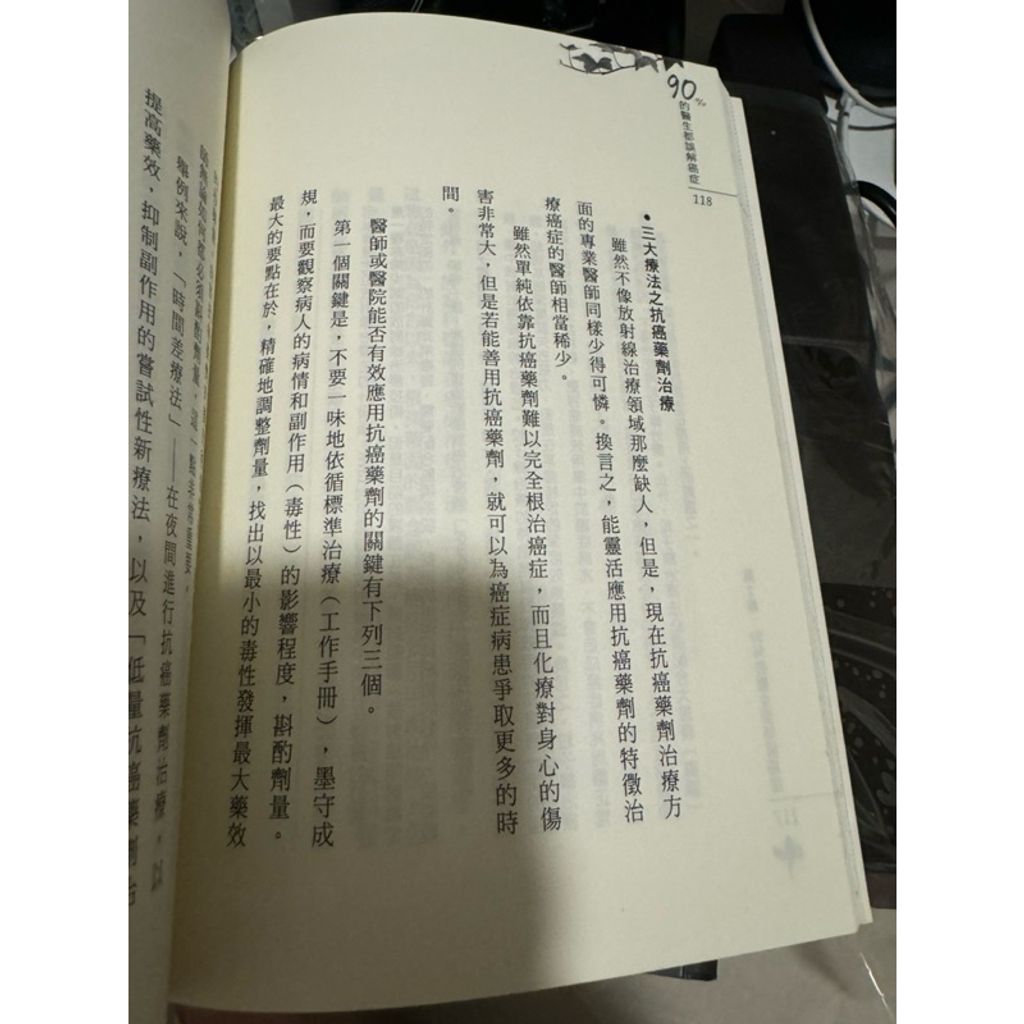 90%的醫生都誤解癌症
118
•三大療法之抗癌藥劑治療
雖然不像放射線治療領域那麼缺人，但是，現在抗癌藥劑治療方
面的專業醫師同樣少得可憐。換言之，能靈活應用抗癌藥劑的特徵治
療癌症的醫師相當稀少。
雖然單純依靠抗癌藥劑難以完全根治癌症，而且化療對身心的傷
害非常大，但是若能善用抗癌藥劑，就可以為癌症病患爭取更多的時
間。
醫師或醫院能否有效應用抗癌藥劑的關鍵有下列三個。
第一個關鍵是，不要一味地依循標準治療（工作手冊），墨守成
規，而要觀察病人的病情和副作用（毒性）的影響程度，斟酌劑量。
最大的要點在於，精確地調整劑量，找出以最小的毒性發揮最大藥效
舉例來說，「時間差療法」——在夜間進行抗癌藥劑治療，以
提高藥效，抑制副作用的嘗試性新療法，以及「低量抗癌藥劑治